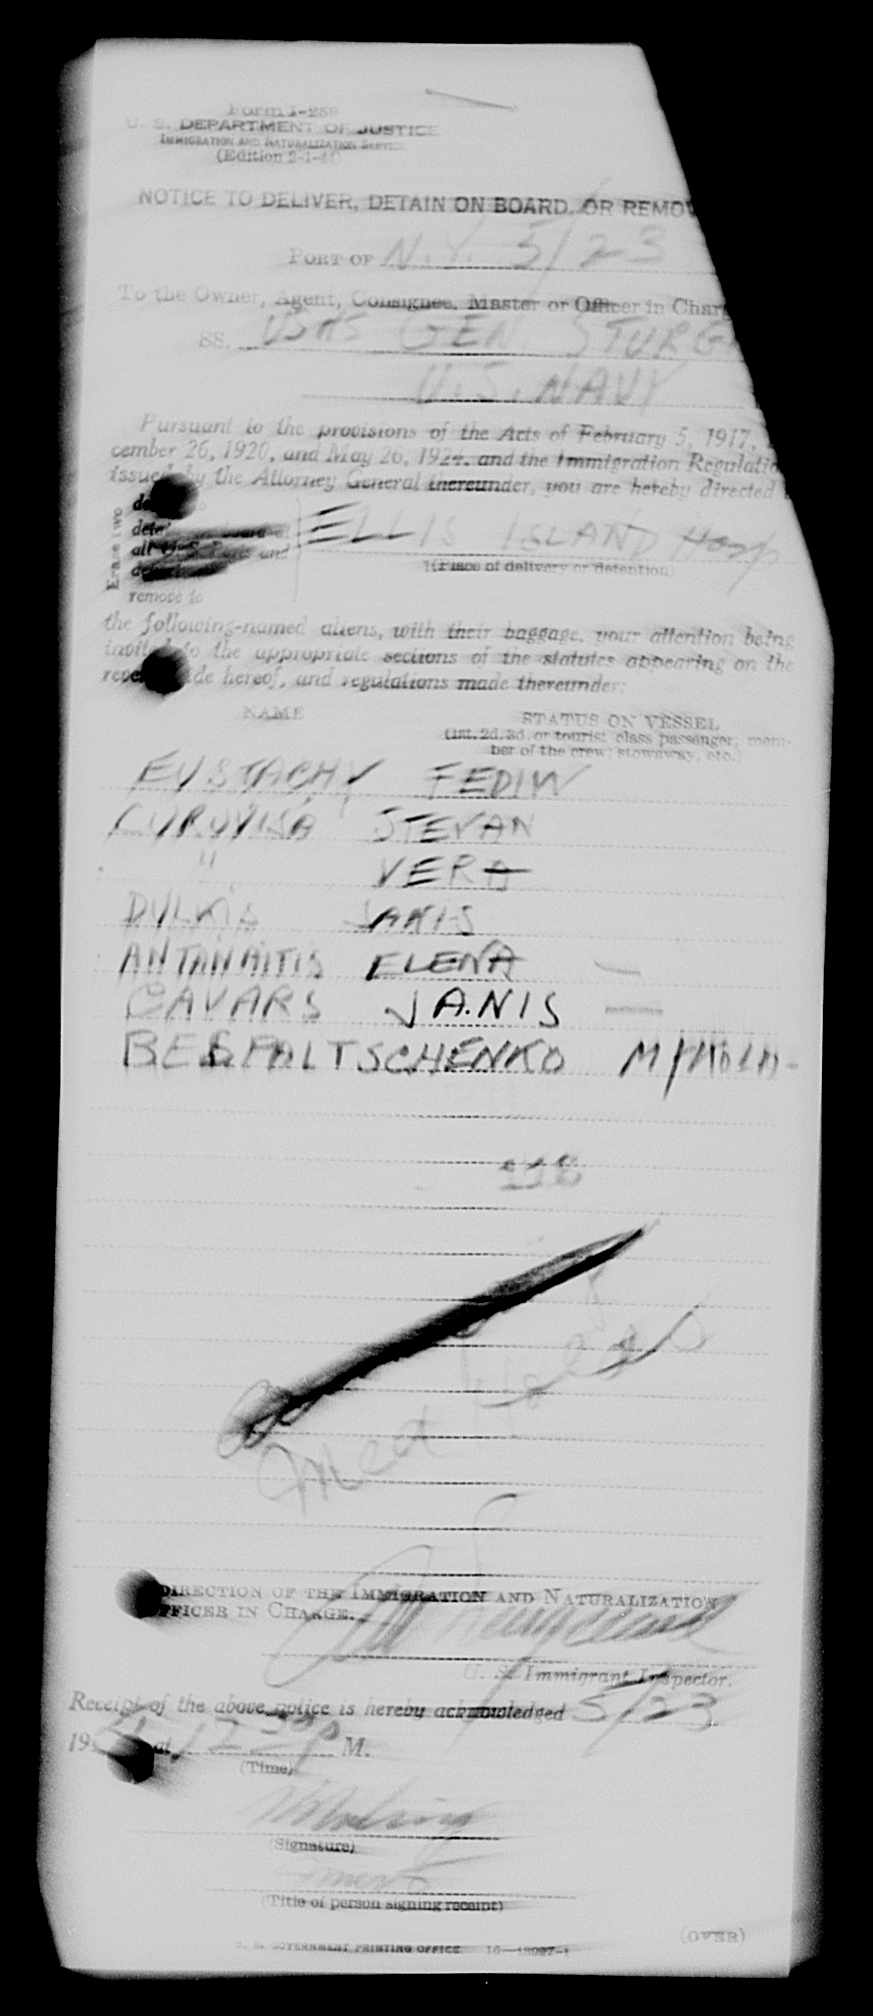 Form I-259
U. S. DEPARTMENT OF JUSTICE
IMMIGRATION AND NATURALIZATION SERVICE
(Edition 2-1-41)
NOTICE TO DELIVER, DETAIN ON BOARD, OR REMOV
PORT OF N.Y. 5/23
To the Owner, Agent, Consignee, Master or Officer in Char
SS. USNS GEN. STURG
U.S. NAVY
Pursuant to the provisions of the Acts of February 5, 1917,
cember 26, 1920, and May 26, 1924, and the Immigration Regulatio
issued by the Attorney General thereunder, you are hereby directed
Erase two
remove to
ELLIS ISLAND Hosp
(Place of delivery or detention)
the following-named aliens, with their baggage, your attention being
invited to the appropriate sections of the statutes appearing on the
reverse side hereof, and regulations made thereunder:
NAME STATUS ON VESSEL
(1st, 2d, 3d, or tourist class passenger, mem-
ber of the crew, stowaway, etc.)
EUSTACHY FEDIW
STEVAN
" VERA
JANIS
ANTANAITIS ELENA —
CAVARS JANIS —
BESPALTSCHENKO
Med Holds
DIRECTION OF THE IMMIGRATION AND NATURALIZATION
OFFICER IN CHARGE.
U. S. Immigrant Inspector.
Receipt of the above notice is hereby acknowledged 5/23
19 at M.
(Time)
(Signature)
(Title of person signing receipt)
(OVER)
U. S. GOVERNMENT PRINTING OFFICE 16—13097-1